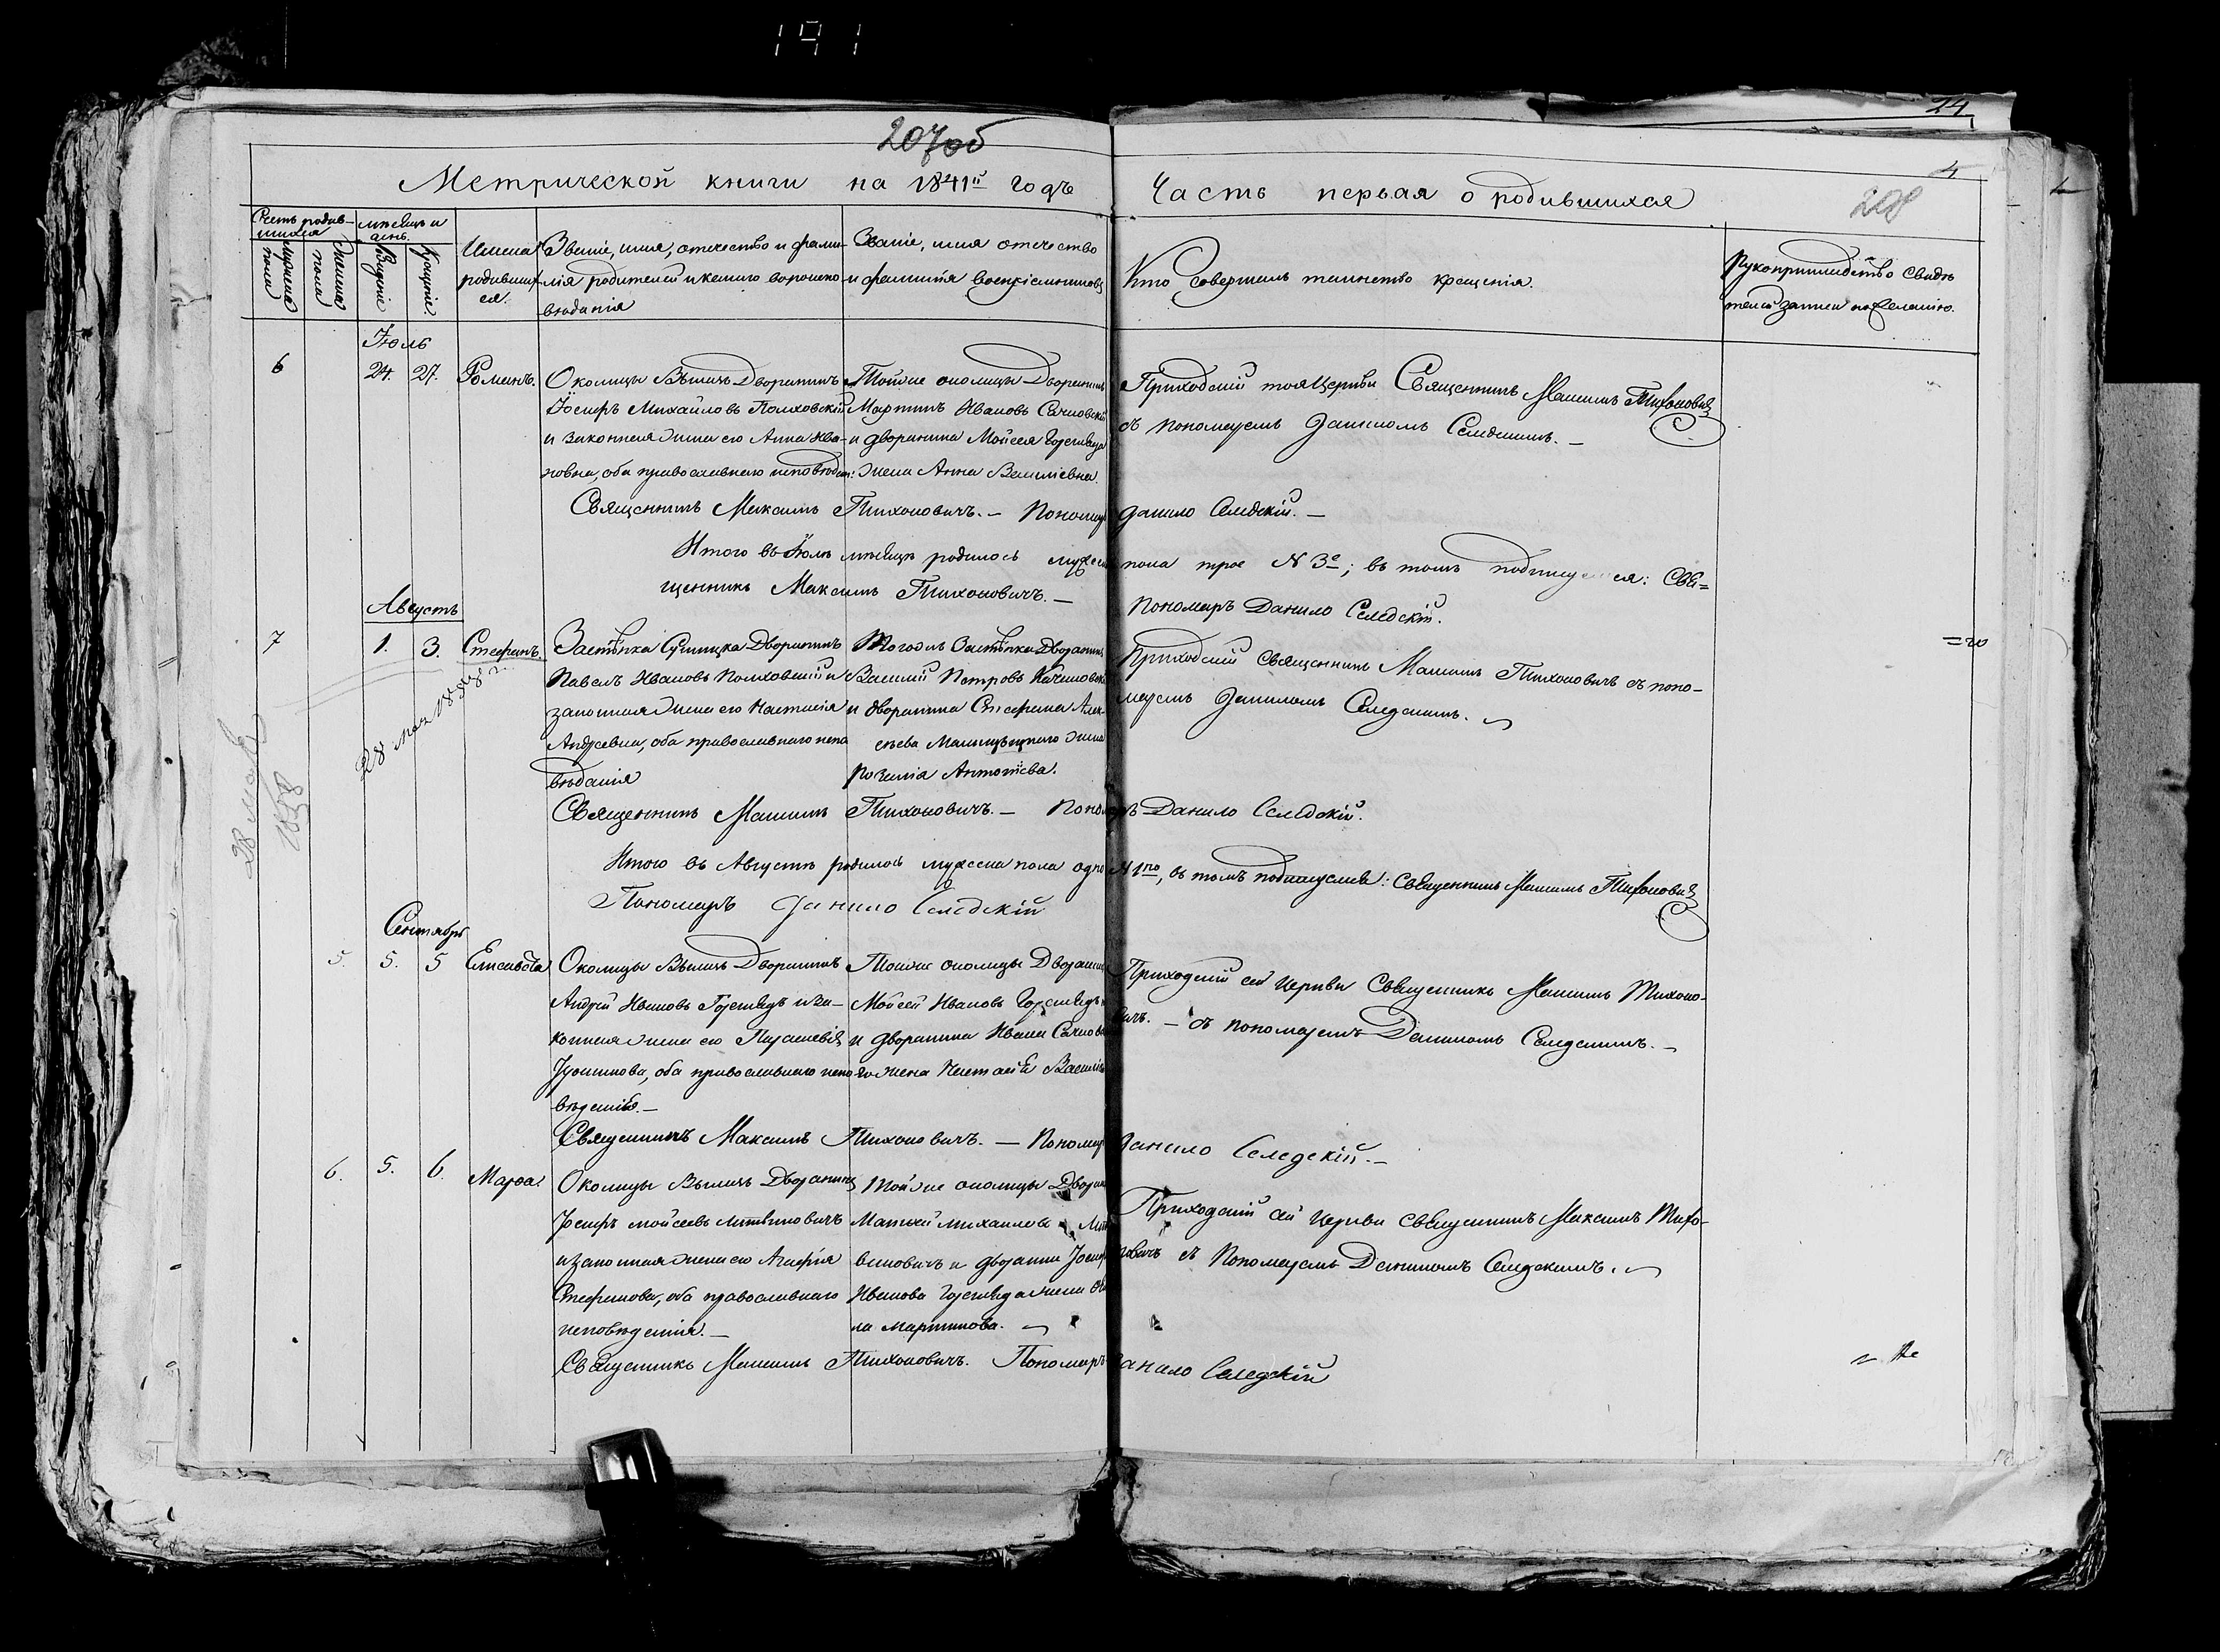 191
207об
24
4
208
Метрической книги на 1841й годъ
Часть первая о родившихся
Счетъ родившихся
мѣсяцъ и день.
Мужеска пола
Женска пола
Рожденіе
Крещеніе
Имена родившихся.
Званіе, имя, отечество и фамилія родителей и какого вѣроисповѣданія
Званіе, имя отечество и фамилія воспріемниковъ
Кто совершалъ таинство крещенія.
Рукоприкладство свидѣтелей записи по желанію.
Іюль
6 24. 27. Романъ.
Околицы Вѣличъ Дворянинъ
Іосифъ Михайловъ Полховскій
и законная жена его Анна Ива-
новна, оба православнаго исповѣдан:
Тойже околицы Дворянинъ
Мартинъ Ивановъ Сачковскій
и дворянина Мойсея Горегляда
жена Анна Василіевна.
Приходскій тоя Церкви Священникъ Максимъ Тихоновичъ
съ пономаремъ Даниломъ Следскимъ. —
Священникъ Максимъ Тихоновичъ. — Пономарь Данило Следскій. —
Итого въ Іюлѣ мѣсяцѣ родилось мужеска пола трое N 3е; въ томъ подписуемся: Свя=
щенникъ Максимъ Тихоновичъ. — Пономарь Данило Следскій.
Августъ
7 1. 3. Стефанъ.
28 мая 1858 г.
28 мая
1858
Застѣнка Дворянинъ
Павелъ Ивановъ Полховскій и
законная жена его Настасія
Андреевна, оба православнаго испо
вѣданія
Тогожъ Застѣнка Дворянинъ
Василій Петровъ
и дворянина Стефана Алек-
сѣева жена
Розалія Антонѣва.
Приходскій Священникъ Максимъ Тихоновичъ съ поно-
маремъ Даниломъ Следскимъ.
Священникъ Максимъ Тихоновичъ. — Пономарь Данило Следскій.
Итого въ Августѣ родилось мужеска пола одно N 1но, въ томъ подписуемся: Священникъ Максимъ Тихоновичъ
Пономарь Данило Следскій
Сентябрь
5. 5. 5 Елисавета
Околицы Вѣличъ Дворянинъ
Андрей Ивановъ Гореглядъ и за-
конная жена его Параскевія
оба православнаго испо
вѣданія. —
Тойже околицы Дворянинъ
Мойсей Ивановъ Гореглядъ
и дворянина Ивана
жена Настасія Василіе
Приходскій сей Церкви Священникъ Максимъ Тихоно-
вичъ. — съ пономаремъ Даниломъ Следскимъ. —
Священникъ Максимъ Тихоновичъ. — Пономарь Данило Следскій. —
6. 5. 6. Марѳа.
Околицы Вѣличъ Дворянинъ
Іосифъ Мойсеевъ Литвиновичъ
и законная жена его Агафія
Стефанова, оба православнаго
исповѣданія. —
Тойже околицы Дворян
Матѳей Михаиловъ Лит
виновичъ и дворянина Іосиф
Иванова Горегляда жена
Мартинова. —
Приходскій сей Церкви Священникъ Максимъ Тихо-
новичъ съ Пономаремъ Даниломъ Следскимъ.
Священникъ Максимъ Тихоновичъ. Пономарь Данило Следскій